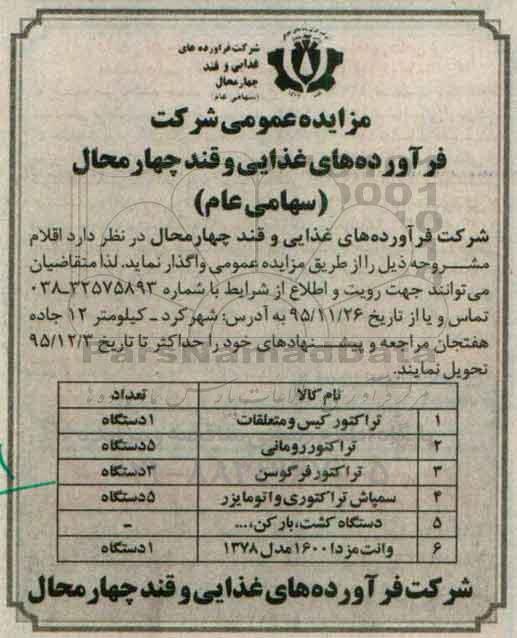 شرکت فرآورده های
غذایی و قند
چهارمحال
(سهامی عام)
مزایده عمومی شرکت
فرآورده‌های غذایی و قند چهارمحال
(سهامی عام)
شرکت فرآورده‌های غذایی و قند چهارمحال در نظر دارد اقلام
مشـــروحه ذیل را از طریق مزایده عمومی واگذار نماید. لذا متقاضیان
می‌توانند جهت رویت و اطلاع از شرایط با شماره ۳۲۵۷۵۸۹۳-۰۳۸
تماس و یا از تاریخ ۹۵/۱۱/۲۶ به آدرس: شهرکرد ـ کیلومتر ۱۲ جاده
هفتجان مراجعه و پیشـــنهادهای خود را حداکثر تا تاریخ ۹۵/۱۲/۳
تحویل نمایند.
نام کالا تعداد
۱ تراکتور کیس و متعلقات ۱دستگاه
۲ تراکتور رومانی ۵دستگاه
۳ تراکتور فرگوسن ۳دستگاه
۴ سمپاش تراکتوری و اتومایزر ۵دستگاه
۵ دستگاه کشت، بارکن،... -
۶ وانت مزدا ۱۶۰۰ مدل ۱۳۷۸ ۱دستگاه
شرکت فرآورده‌های غذایی و قند چهارمحال
ParsNamadData